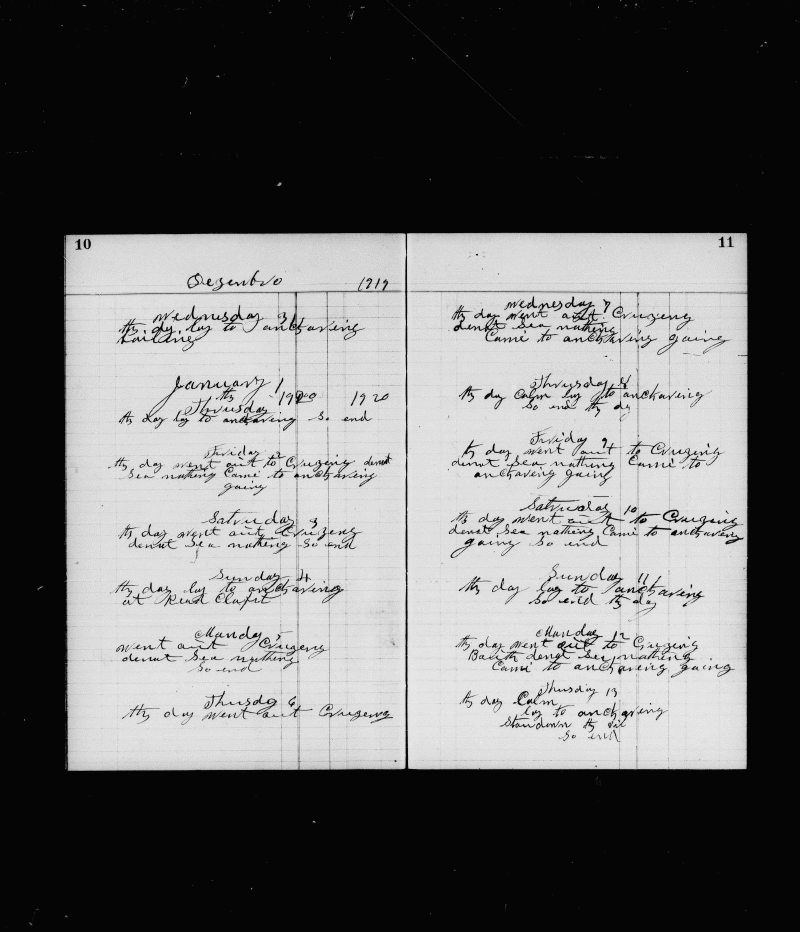 10
Dezenbro 1919
Wednesday 31
th day lay to anckaving
boiling
January 1
th 1920 1920
Thrusday
th day lay to anckaving So end
Friday 2
th day went aut to Cruzing denut
Sea nathing Came to anckaving
going
Satruday 3
th day went aut Cruzeng
denut Sea nathing So end
Sunday 4
th day lay to anckaving
at
Manday 5
went aut Cruzeng
denut Sea nathing
So end
Thusday 6
th day went aut Cruzeng
11
Wednesday 7
th day went aut Cruzeng
denut Sea nathing
Came to anckaving gaing
Thrusday 8
th day Calm lay to anckaving
So end th day
Friday 9
th day went aut to Cruzing
denut Sea nathing Came to
anckaving gaing
Satruday 10
th day went aut to Cruzing
denut Sea nathing Came to anckaveng
gaing So end
Sunday 11
th day lay to anckaving
So end th day
Manday 12
th day went aut to Cruzing
denut Sea nathing
Came to anckaveng gaing
Thusday 13
th day Calm
lay to anckaving
Staudown th oil
So end